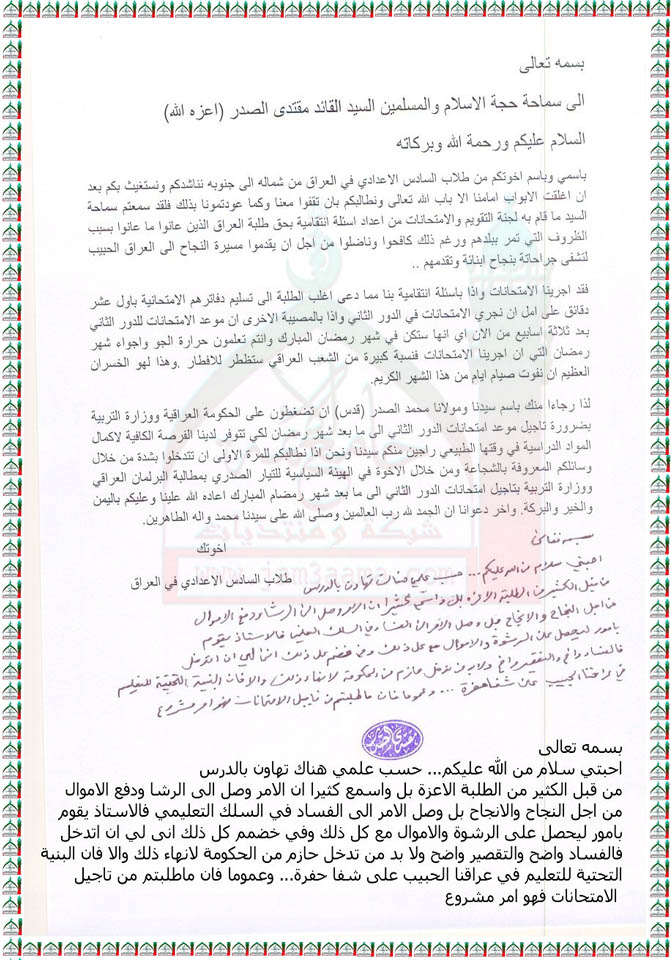 بسمه تعالى
الى سماحة حجة الاسلام والمسلمين السيد القائد مقتدى الصدر (اعزه الله)
السلام عليكم ورحمة الله وبركاته
باسمي وباسم اخوتكم من طلاب السادس الاعدادي في العراق من شماله الى جنوبه نناشدكم ونستغيث بكم بعد
ان اغلقت الابواب امامنا الا باب الله تعالى ونطالبكم بان تقفوا معنا وكما عودتمونا بذلك فلقد سمعتم سماحة
السيد ما قام به لجنة التقويم والامتحانات من اعداد اسئلة انتقامية بحق طلبة العراق الذين عانوا ما عانوا بسبب
الظروف التي تمر ببلدهم ورغم ذلك كافحوا وناضلوا من اجل ان يقدموا مسيرة النجاح الى العراق الحبيب
لتشفى جراحاتة بنجاح ابنائة وتقدمهم ..
فقد اجرينا الامتحانات واذا باسئلة انتقامية بنا مما دعى اغلب الطلبة الى تسليم دفاترهم الامتحانية باول عشر
دقائق على امل ان نجري الامتحانات في الدور الثاني واذا بالمصيبة الاخرى ان موعد الامتحانات للدور الثاني
بعد ثلاثة اسابيع من الان اي انها ستكن في شهر رمضان المبارك وانتم تعلمون حرارة الجو واجواء شهر
رمضان التي ان اجرينا الامتحانات فنسبة كبيرة من الشعب العراقي ستظطر للافطار .وهذا لهو الخسران
العظيم ان نفوت صيام ايام من هذا الشهر الكريم.
لذا رجاءا منك باسم سيدنا ومولانا محمد الصدر (قدس) ان تضغطون على الحكومة العراقية ووزارة التربية
بضرورة تاجيل موعد امتحانات الدور الثاني الى ما بعد شهر رمضان لكي تتوفر لدينا الفرصة الكافية لاكمال
المواد الدراسية في وقتها الطبيعي راجين منكم سيدنا ونحن اذا نطالبكم للمرة الاولى ان تتدخلوا بشدة من خلال
وسائلكم المعروفة بالشجاعة ومن خلال الاخوة في الهيئة السياسية للتيار الصدري بمطالبة البرلمان العراقي
ووزارة التربية بتاجيل امتحانات الدور الثاني الى ما بعد شهر رمضام المبارك اعاده الله علينا وعليكم باليمن
والخير والبركة. واخر دعوانا ان الجمد لله رب العالمين وصلى الله على سيدنا محمد واله الطاهرين.
اخوتك
طلاب السادس الاعدادي في العراق
جامع الائمة
شبكة ومنتديات
www.jam3aama.com
بسمه تعالى
احبتي سلام من الله عليكم... حسب علمي هناك تهاون بالدرس
من قبل الكثير من الطلبة الاعزة بل واسمع كثيرا ان الامر وصل الى الرشا ودفع الاموال
من اجل النجاح والانجاح بل وصل الامر الى الفساد في السلك التعليمي فالاستاذ يقوم
بامور ليحصل على الرشوة والاموال مع كل ذلك وفي خضم كل ذلك انى لي ان اتدخل
فالفساد واضح والتقصير واضح ولا بد من تدخل حازم من الحكومة لانهاء ذلك والا فان البنية التحتية للتعليم
في عراقنا الحبيب على شفا حفرة... وعموما فان ماطلبتم من تاجيل الامتحانات فهو امر مشروع
مقتدى الصدر
بسمه تعالى
احبتي سلام من الله عليكم... حسب علمي هناك تهاون بالدرس
من قبل الكثير من الطلبة الاعزة بل واسمع كثيرا ان الامر وصل الى الرشا ودفع الاموال
من اجل النجاح والانجاح بل وصل الامر الى الفساد في السلك التعليمي فالاستاذ يقوم
بامور ليحصل على الرشوة والاموال مع كل ذلك وفي خضمم كل ذلك انى لي ان اتدخل
فالفساد واضح والتقصير واضح ولا بد من تدخل حازم من الحكومة لانهاء ذلك والا فان البنية
التحتية للتعليم في عراقنا الحبيب على شفا حفرة... وعموما فان ماطلبتم من تاجيل
الامتحانات فهو امر مشروع